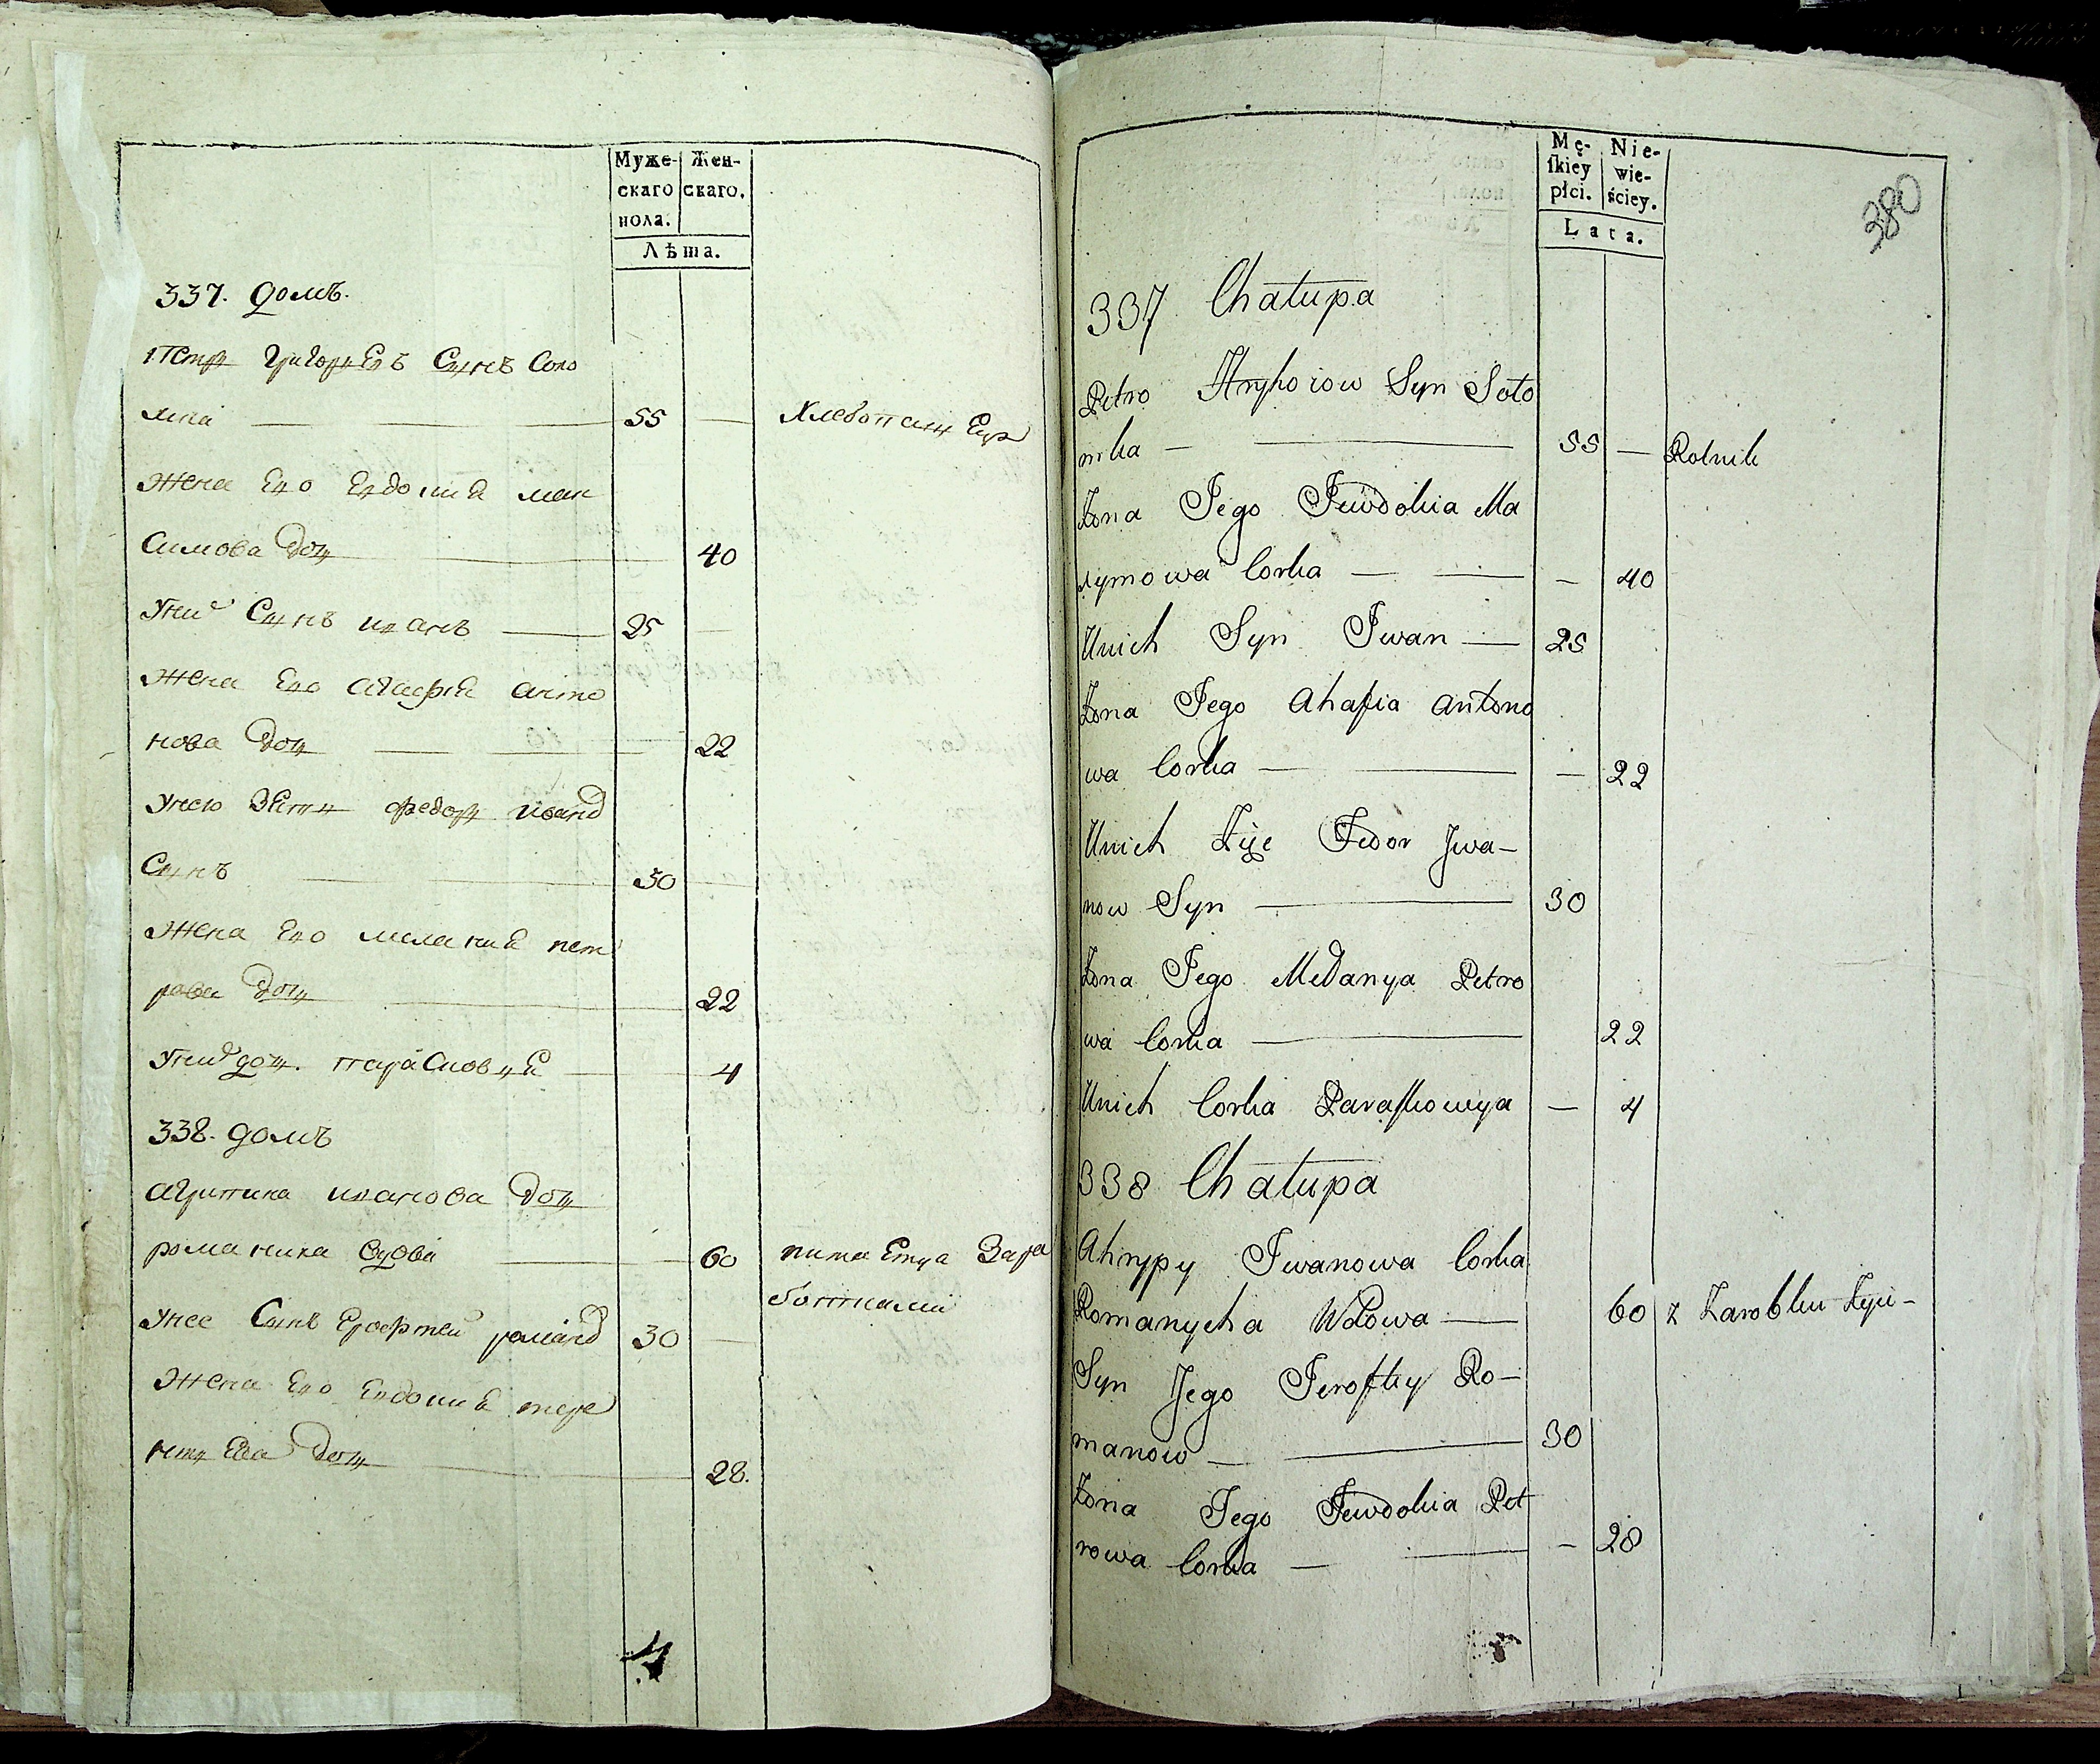 Муже- Жен-
скаго скаго.
пола.
Лѣта.
337. домъ.
1. Петръ Григорьевъ Сынъ Соло
мка — — — 55 — Хлебопашецъ
Жена Его Евдокия мак
симова дочь — 40
У них Сынъ иванъ — 25 —
Жена Его агафия анто
нова дочь — — 22
У нею Зять федоръ иванов
Сынъ — 30 —
Жена Его мелания пет
рова дочь — 22
У них доч. парасковия — 4
338. домъ
агрипина иванова дочь
романиха вдова — 60 питаетца Зара
ботками
У нее Сынъ Ерофтей романов 30 —
Жена Его Евдокия тере
нтьева дочь — 28.
4
380
Mę- Nie-
skiey wie-
płci. ściey.
Lata.
337 Chałupa
Petro Hryhoiow Syn Soło
mka — — 55 — Rolnik
Żona Jego Jewdokia Ma
xymowa Corka — — — 40
Unich Syn Jwan — 25
Żona Jego Ahafia Antono
wa Corka — — — 22
Unich Żije Fedor Jwa-
now Syn — 30
Żona Jego Mełanya Petro
wa Corka — 22
Unich Corka Paraskowya — 4
338 Chałupa
Ahrypy Jwanowa Corka
Romanycha Wdowa — 60 z Zarobku Żyi-
Syn Jego Jeroftey Ro-
manow — — 30
Żona Jego Jewdokia Pet
rowa Corka — — — 28